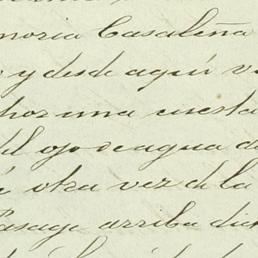 moria Casaleña
y desde aquí v
por una cuesta
del ojo de agua de
otra vez de la
Pasage arriba dic